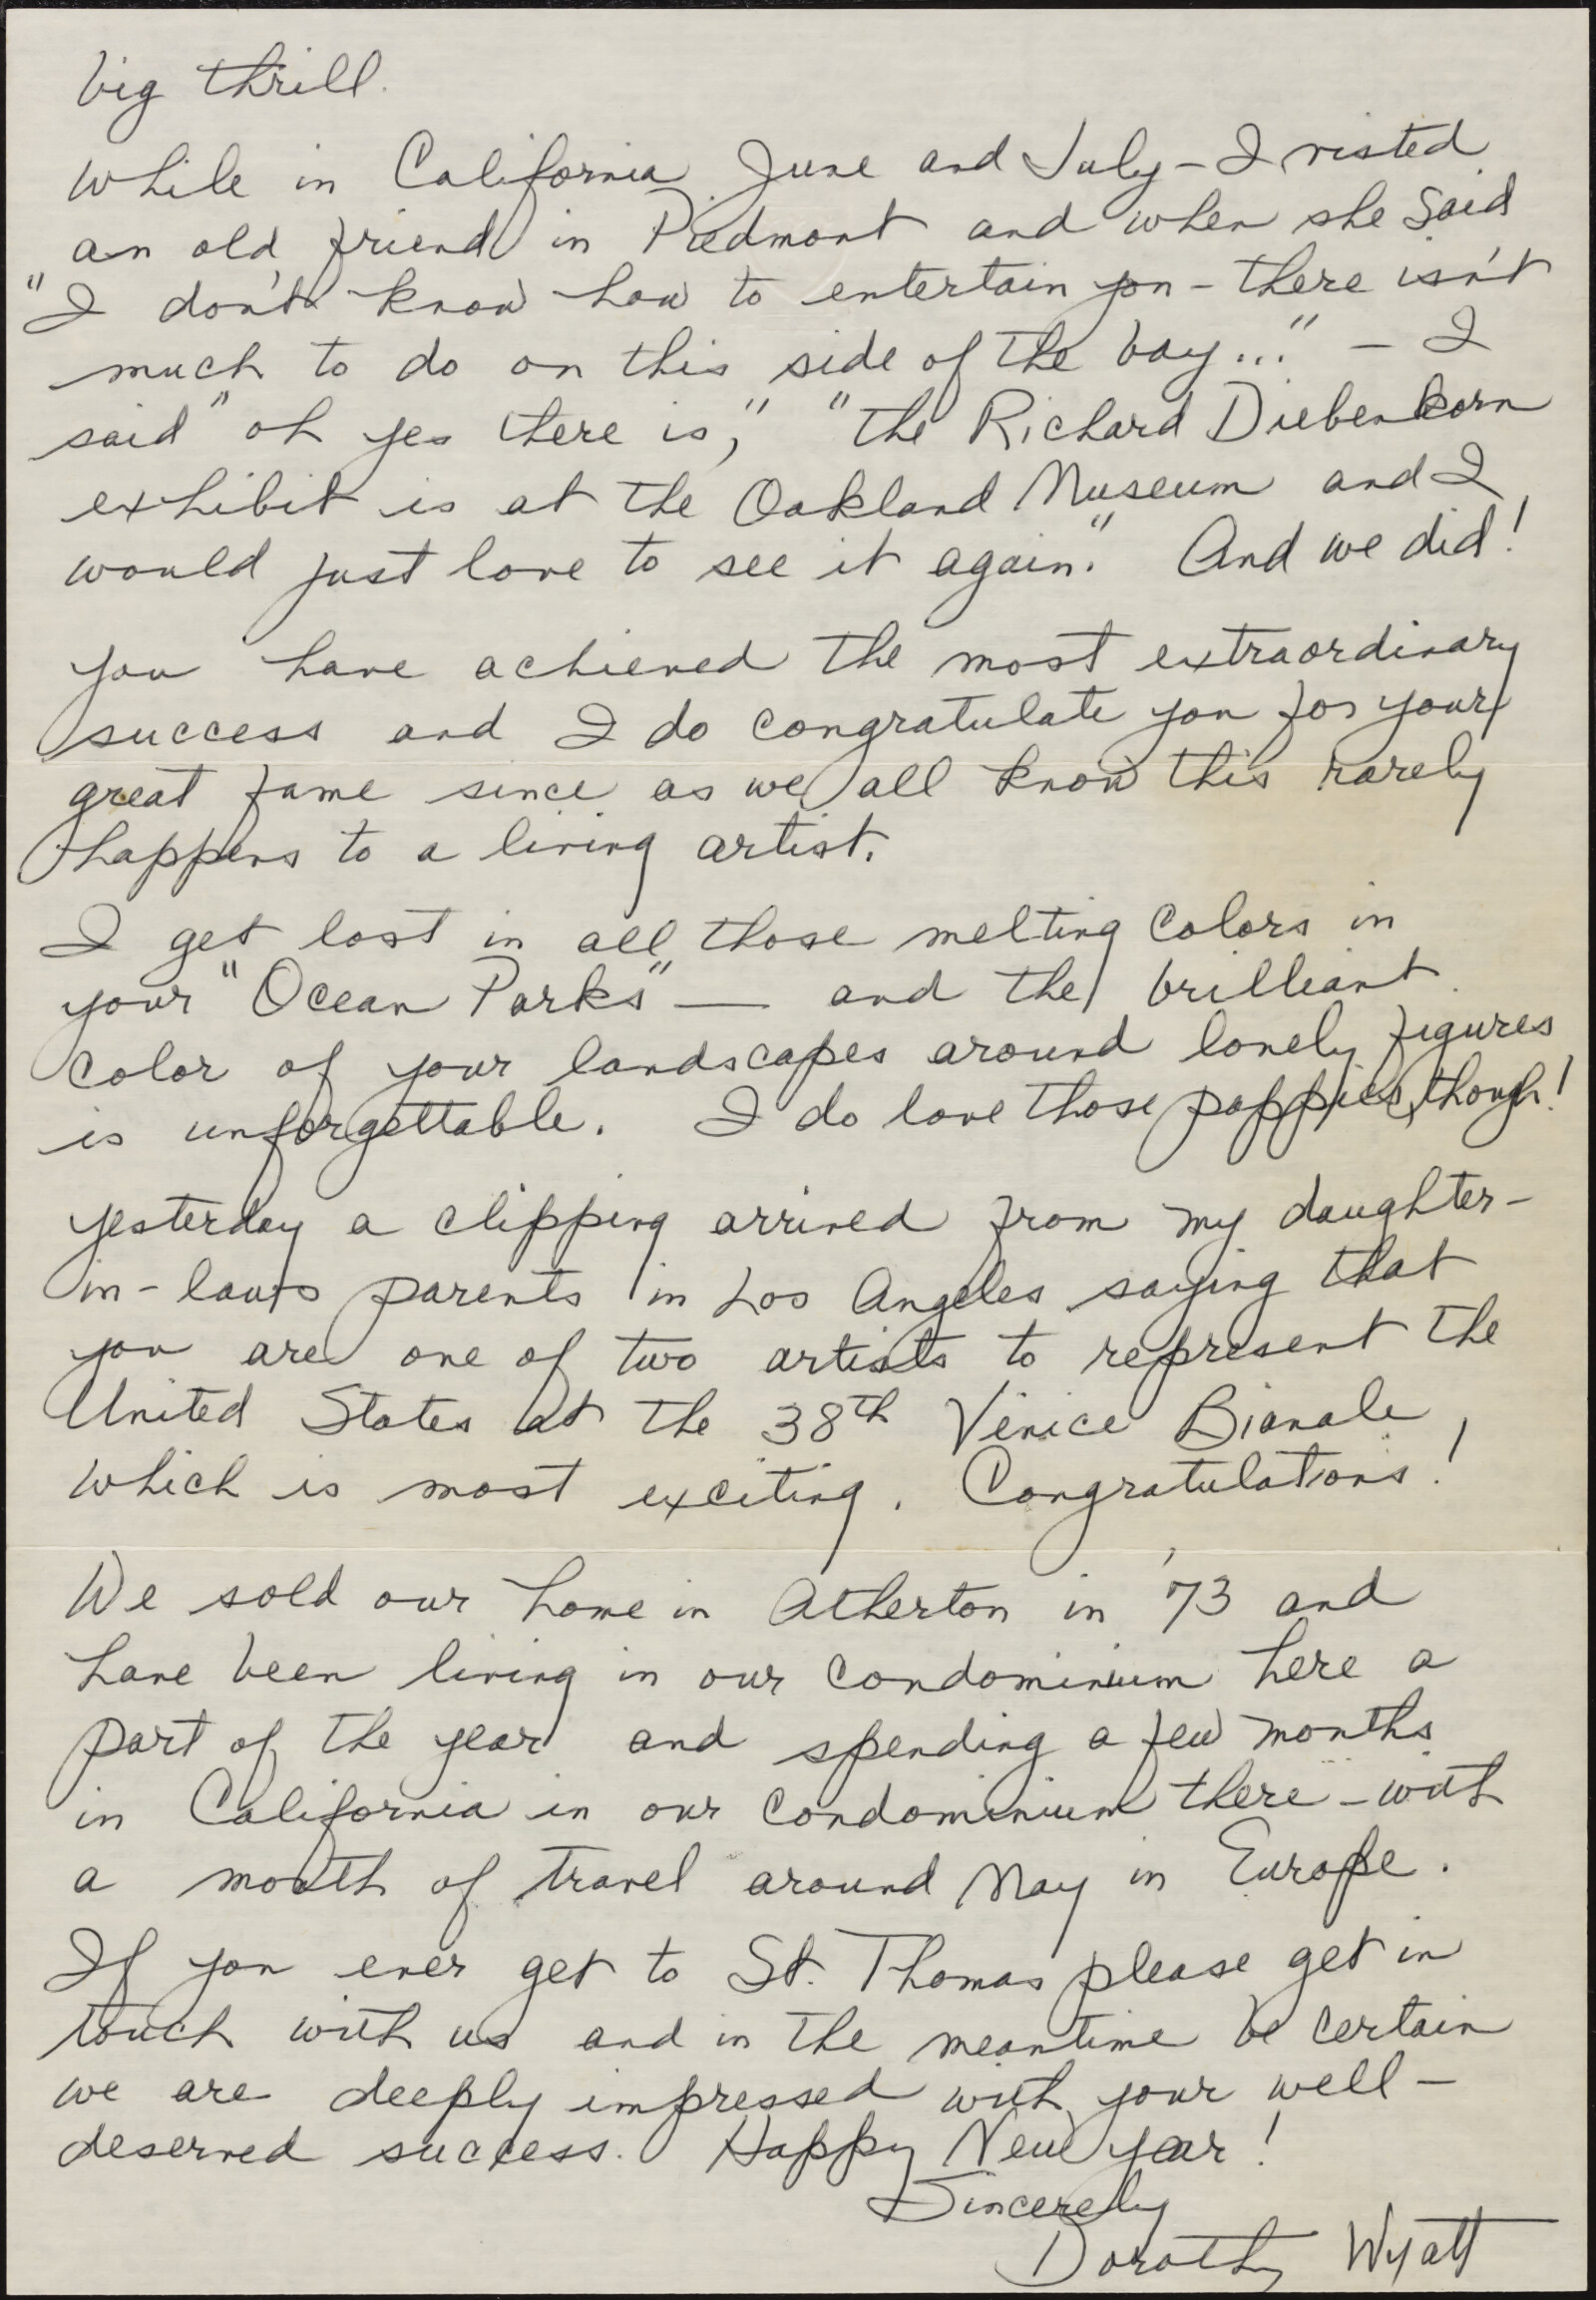 big thrill.
While in California June and July - I visted
an old friend in Piedmont and when she said
"I don't know how to entertain you - there isn't
much to do on this side of the bay..." - I
said "oh yes there is," "the Richard Diebenkorn
exhibit is at the Oakland Museum and I
would just love to see it again." And we did!
You have achieved the most extraordinary
success and I do congratulate you for your
great fame since as we all know this rarely
happens to a living artist.
I get lost in all those melting colors in
your "Ocean Parks" — and the brilliant
color of your landscapes around lonely figures
is unforgettable. I do love those poppies, though!
Yesterday a clipping arrived from my daughter-
in-law's parents in Los Angeles saying that
you are one of two artists to represent the
United States at the 38th Venice Bianale,
which is most exciting. Congratulations!
We sold our home in Atherton in '73 and
have been living in our condominium here a
part of the year and spending a few months
in California in our condominium there - with
a month of travel around May in Europe.
If you ever get to St. Thomas please get in
touch with us and in the meantime be certain
we are deeply impressed with your well-
deserved success. Happy New Year!
Sincerely
Dorothy Wyatt